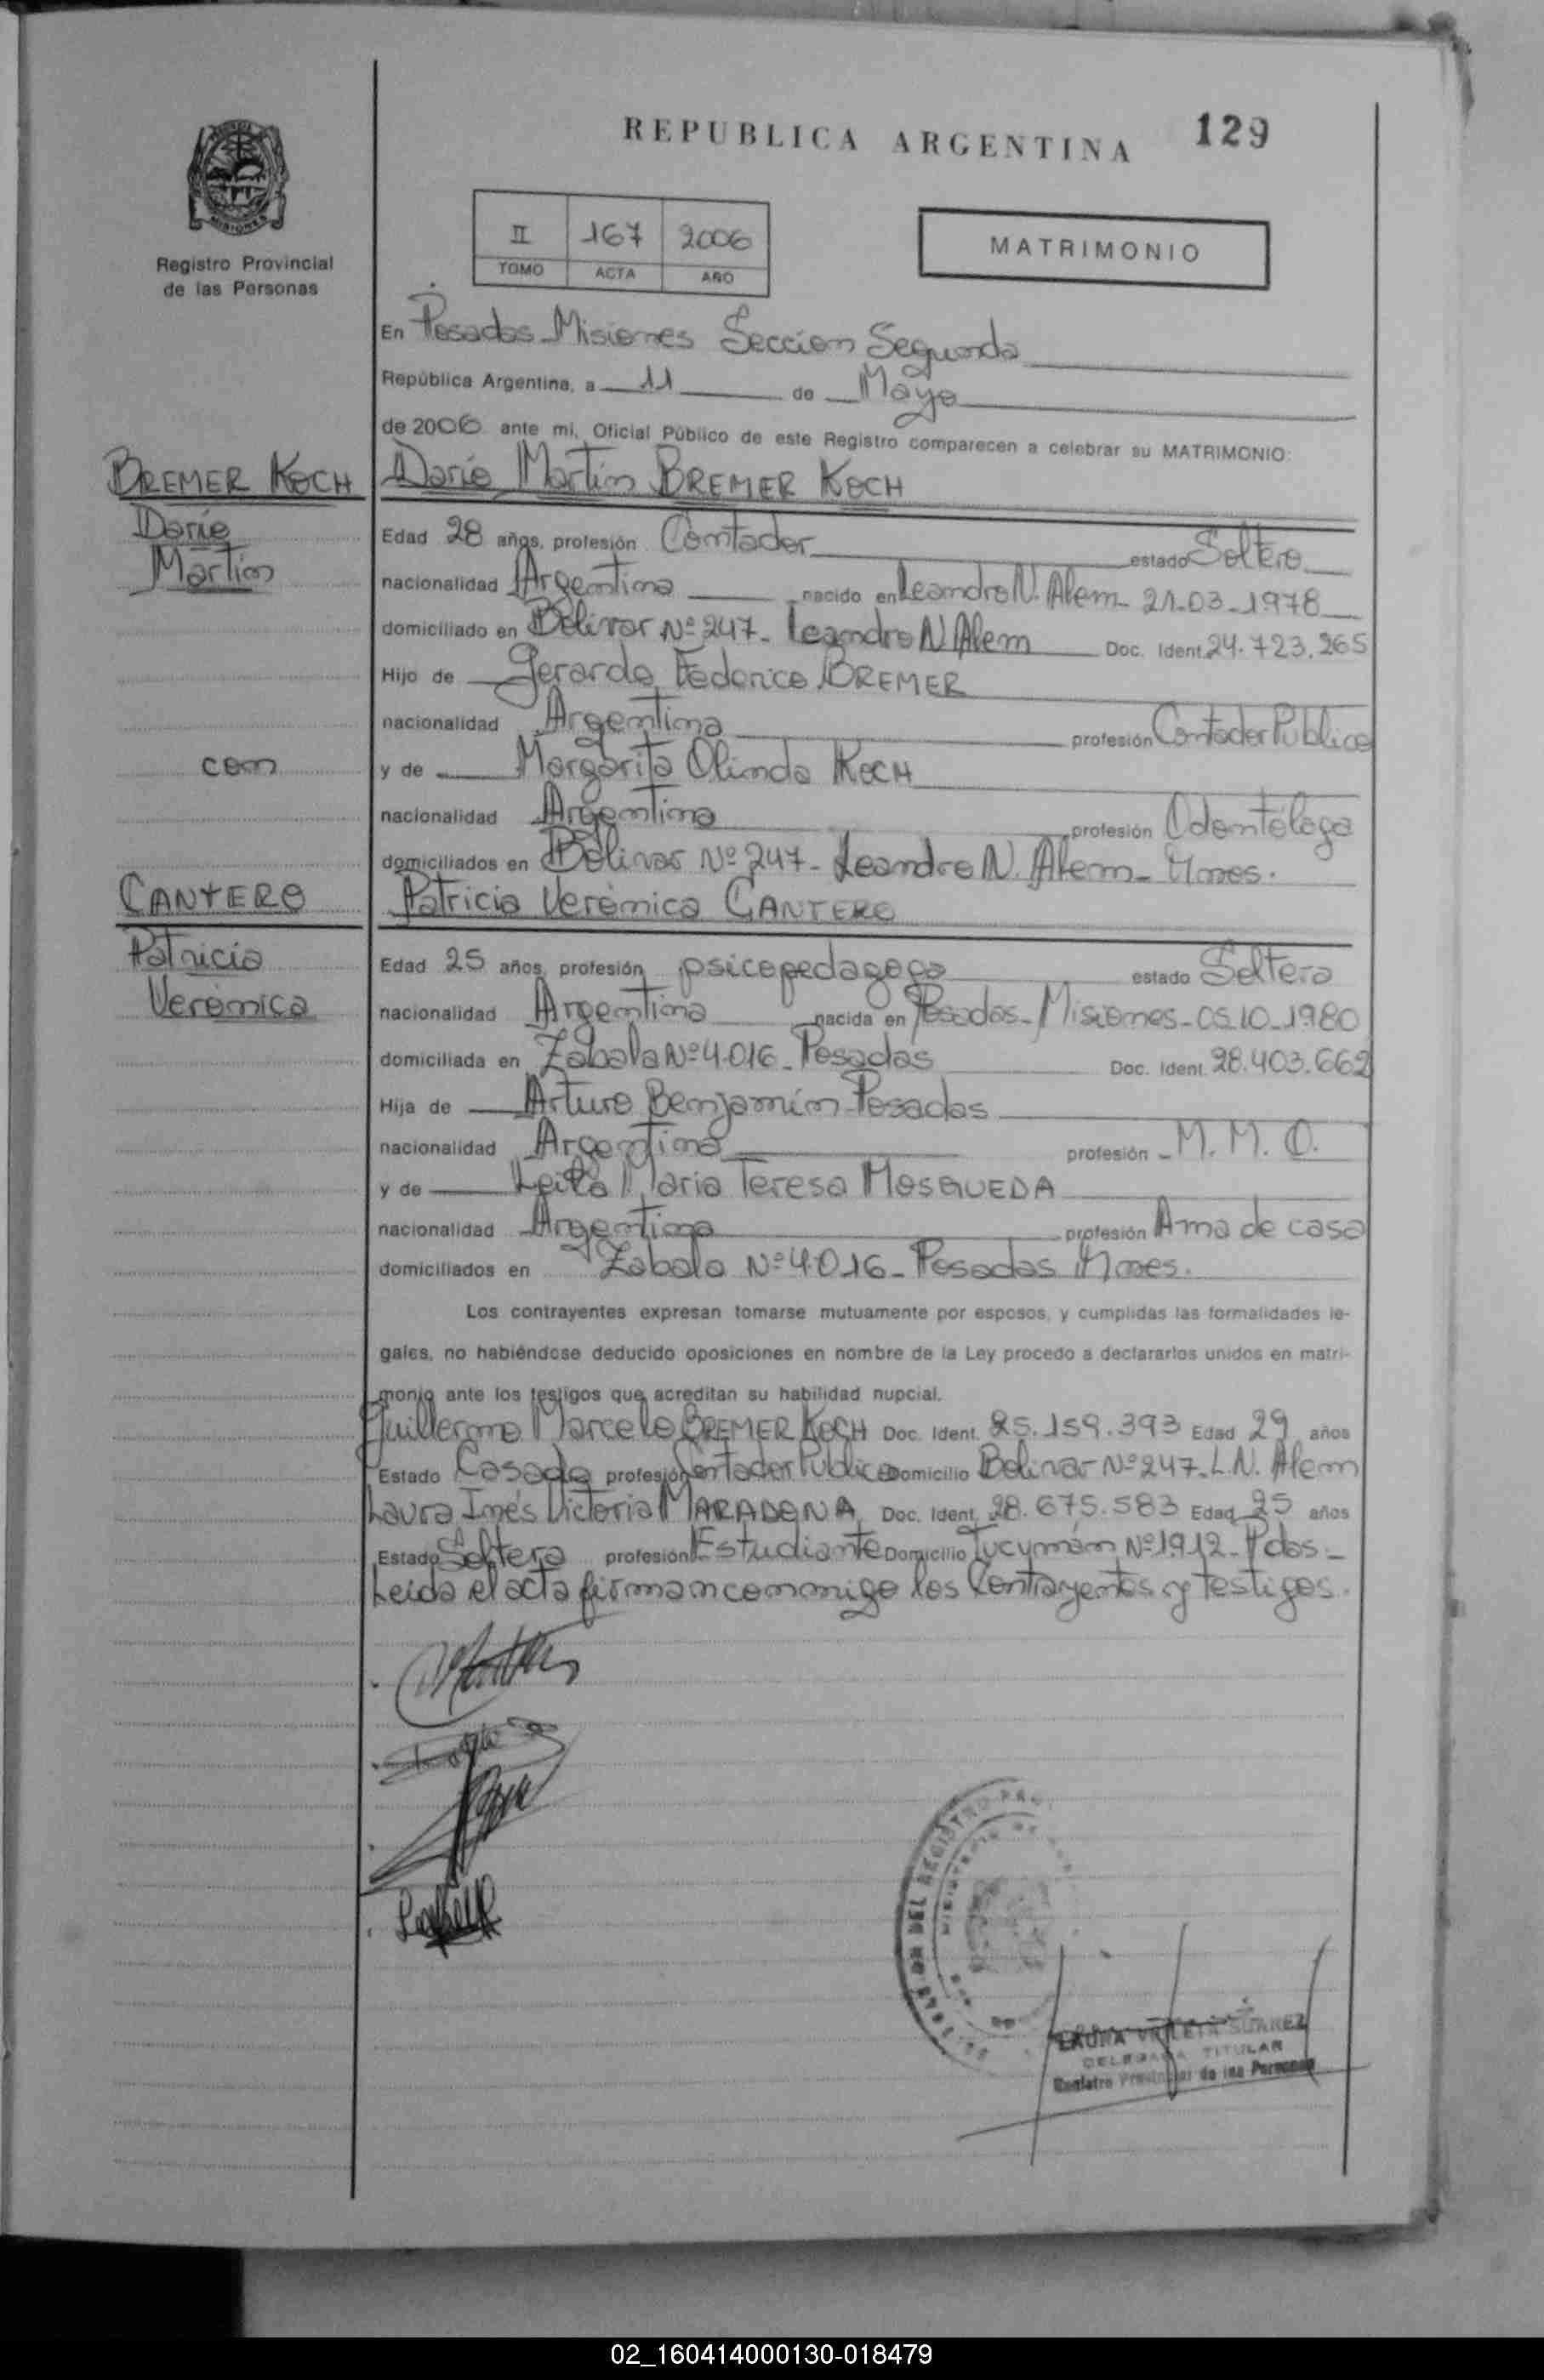 REPUBLICA ARGENTINA 129
II 167 2006
TOMO ACTA AÑO
MATRIMONIO
MISIONES
Registro Provincial
de las Personas
En Posadas Misiones Seccion Segunda
República Argentina, a 11 de Mayo
de 2006 ante mi, Oficial Público de este Registro comparecen a celebrar su MATRIMONIO:
BREMER KOCH Dario Martin BREMER KOCH
Dario Edad 28 años, profesión Contador estado Soltero
Martin nacionalidad Argentina nacido en Leandro N. Alem - 21-03-1978
domiciliado en Bolivar Nº 247- Leandro N Alem Doc. Ident. 24.723.265
Hijo de Gerardo Federico BREMER
nacionalidad Argentina profesión Contador Publico
con y de Margarita Olinda KOCH
nacionalidad Argentina profesión Odontóloga
domiciliados en Bolivar Nº 247- Leandro N. Alem- Mnes.
CANTERO Patricia Verónica CANTERO
Patricia Edad 25 años, profesión psicopedagoga estado Soltera
Verónica nacionalidad Argentina nacida en Posadas- Misiones- 05.10-1980
domiciliada en Zabala Nº 4.016- Posadas Doc. Ident. 28.403.662
Hija de Arturo Benjamín Posadas
nacionalidad Argentina profesión M. M. O.
y de Leila Maria Teresa MOSQUEDA
nacionalidad Argentina profesión Ama de casa
domiciliados en Zabala Nº 4.016- Posadas Mnes.
Los contrayentes expresan tomarse mutuamente por esposos, y cumplidas las formalidades le-
gales, no habiéndose deducido oposiciones en nombre de la Ley procedo a declararlos unidos en matri-
monio ante los testigos que acreditan su habilidad nupcial.
Guillermo Marcelo BREMER KOCH Doc. Ident. 25.159.393 Edad 29 años
Estado Casado profesión Contador Publico Domicilio Bolivar Nº 247- L.N. Alem
Laura Inés Victoria MARADONA Doc. Ident. 28.675.583 Edad 25 años
Estado Soltera profesión Estudiante Domicilio Tucumán Nº 1912- Pdas-
Leida el acta firman conmigo los Contrayentes y testigos.
DEL REGISTRO
LAURA VIOLETA SUAREZ
DELEGADA TITULAR
Registro Provincial de las Personas
02_160414000130-018479